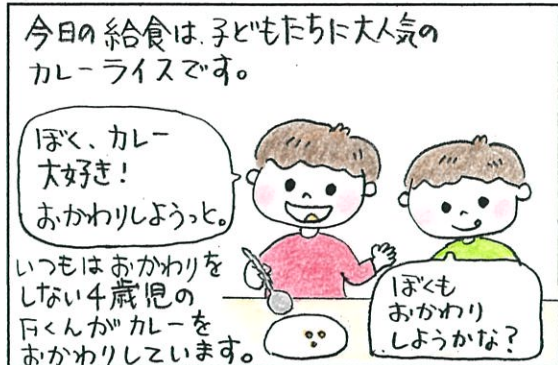 今日の給食は、子どもたちに大人気の
カレーライスです。
ぼく、カレー
大好き!
おかわりしようっと。
いつもはおかわりを
しない4歳児の
Fくんがカレーを
おかわりしています。
ぼくも
おかわり
しようかな?